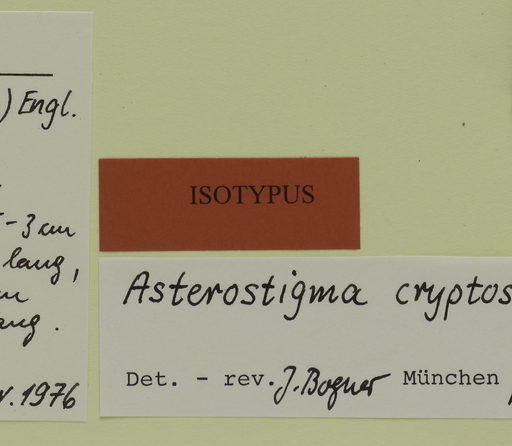 ) Engl.
-3 cm
lang,
ang.
.1976
ISOTYPUS
Asterostigma cryptos
Det. - rev. J. Bogner München